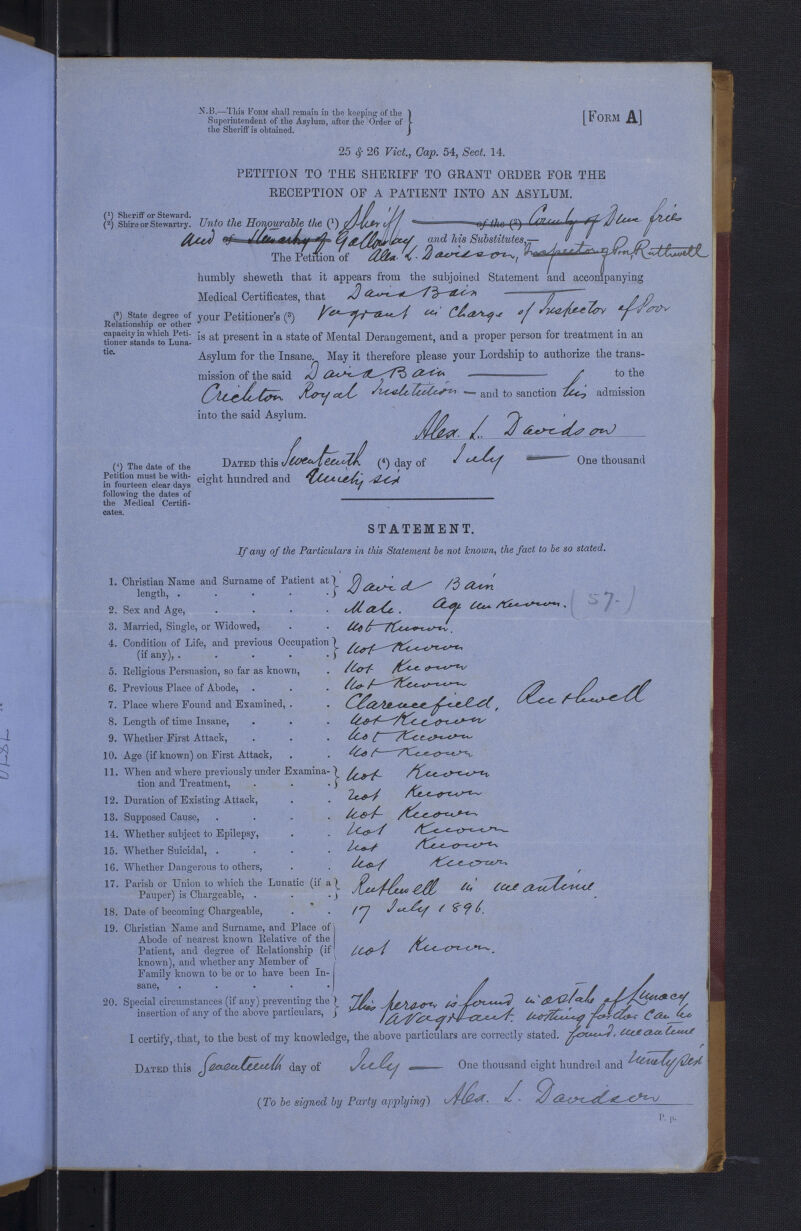 N.B.—This Form shall remain in the keeping of the
Superintendent of the Asylum, after the Order of
the Sheriff is obtained.
[Form A]
25 & 26 Vict., Cap. 54, Sect. 14.
PETITION TO THE SHERIFF TO GRANT ORDER FOR THE
RECEPTION OF A PATIENT INTO AN ASYLUM.
(1) Sheriff or Steward.
(2) Shire or Stewartry.
Unto the Honourable the (1) Sheriff of the (2) County of Dumfries
and of Stewartry of Galloway and his Substitutes—
The Petition of Alex. L. Davidson, Inspector of Poor, Ruthwell
humbly sheweth that it appears from the subjoined Statement and accompanying
Medical Certificates, that David Bain
(3) State degree of
Relationship or other
capacity in which Peti-
tioner stands to Luna-
tic.
your Petitioner's (3) Vagrant in charge of Inspector of Poor
is at present in a state of Mental Derangement, and a proper person for treatment in an
Asylum for the Insane. May it therefore please your Lordship to authorize the trans-
mission of the said David Bain — to the
Crichton Royal Institution — and to sanction his admission
into the said Asylum.
Alex. L. Davidson
(4) The date of the
Petition must be with-
in fourteen clear days
following the dates of
the Medical Certifi-
cates.
Dated this Seventeenth (4) day of July — One thousand
eight hundred and Ninety six
STATEMENT.
If any of the Particulars in this Statement be not known, the fact to be so stated.
1. Christian Name and Surname of Patient at
length, . . . . . David Bain
2. Sex and Age, . . . . Male. Age unknown. (57.)
3. Married, Single, or Widowed, . . not known.
4. Condition of Life, and previous Occupation
(if any), . . . . . not known
5. Religious Persuasion, so far as known, . not known
6. Previous Place of Abode, . . . not known
7. Place where Found and Examined, . . Clarencefield, Ruthwell
8. Length of time Insane, . . . not known
9. Whether First Attack, . . . not known
10. Age (if known) on First Attack, . . not known
11. When and where previously under Examina-
tion and Treatment, . . . not known
12. Duration of Existing Attack, . . not known
13. Supposed Cause, . . . . not known
14. Whether subject to Epilepsy, . . not known
15. Whether Suicidal, . . . . not known
16. Whether Dangerous to others, . . not known
17. Parish or Union to which the Lunatic (if a
Pauper) is Chargeable, . . . Ruthwell in meantime
18. Date of becoming Chargeable, . . 17 July 1896.
19. Christian Name and Surname, and Place of
Abode of nearest known Relative of the
Patient, and degree of Relationship (if
known), and whether any Member of
Family known to be or to have been In-
sane, . . . . . not known.
20. Special circumstances (if any) preventing the
insertion of any of the above particulars,
This person is found in a state of Lunacy
a vagrant. nothing further can be
found. meantime
I certify, that, to the best of my knowledge, the above particulars are correctly stated.
Dated this Seventeenth day of July — One thousand eight hundred and Ninety six
(To be signed by Party applying) Alex. L. Davidson
P. p.